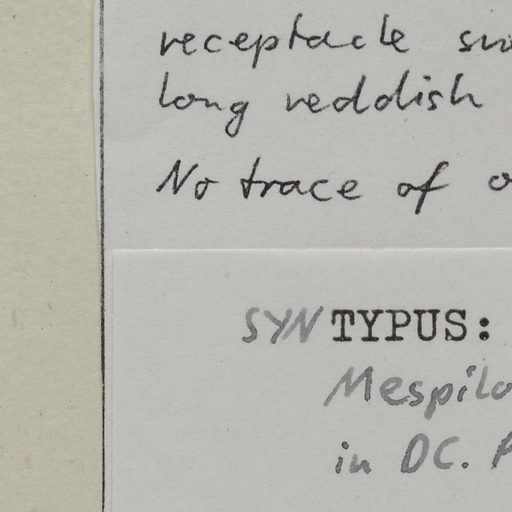 receptacle
long reddish
No trace of
SYNTYPUS:
Mespilo
in DC.